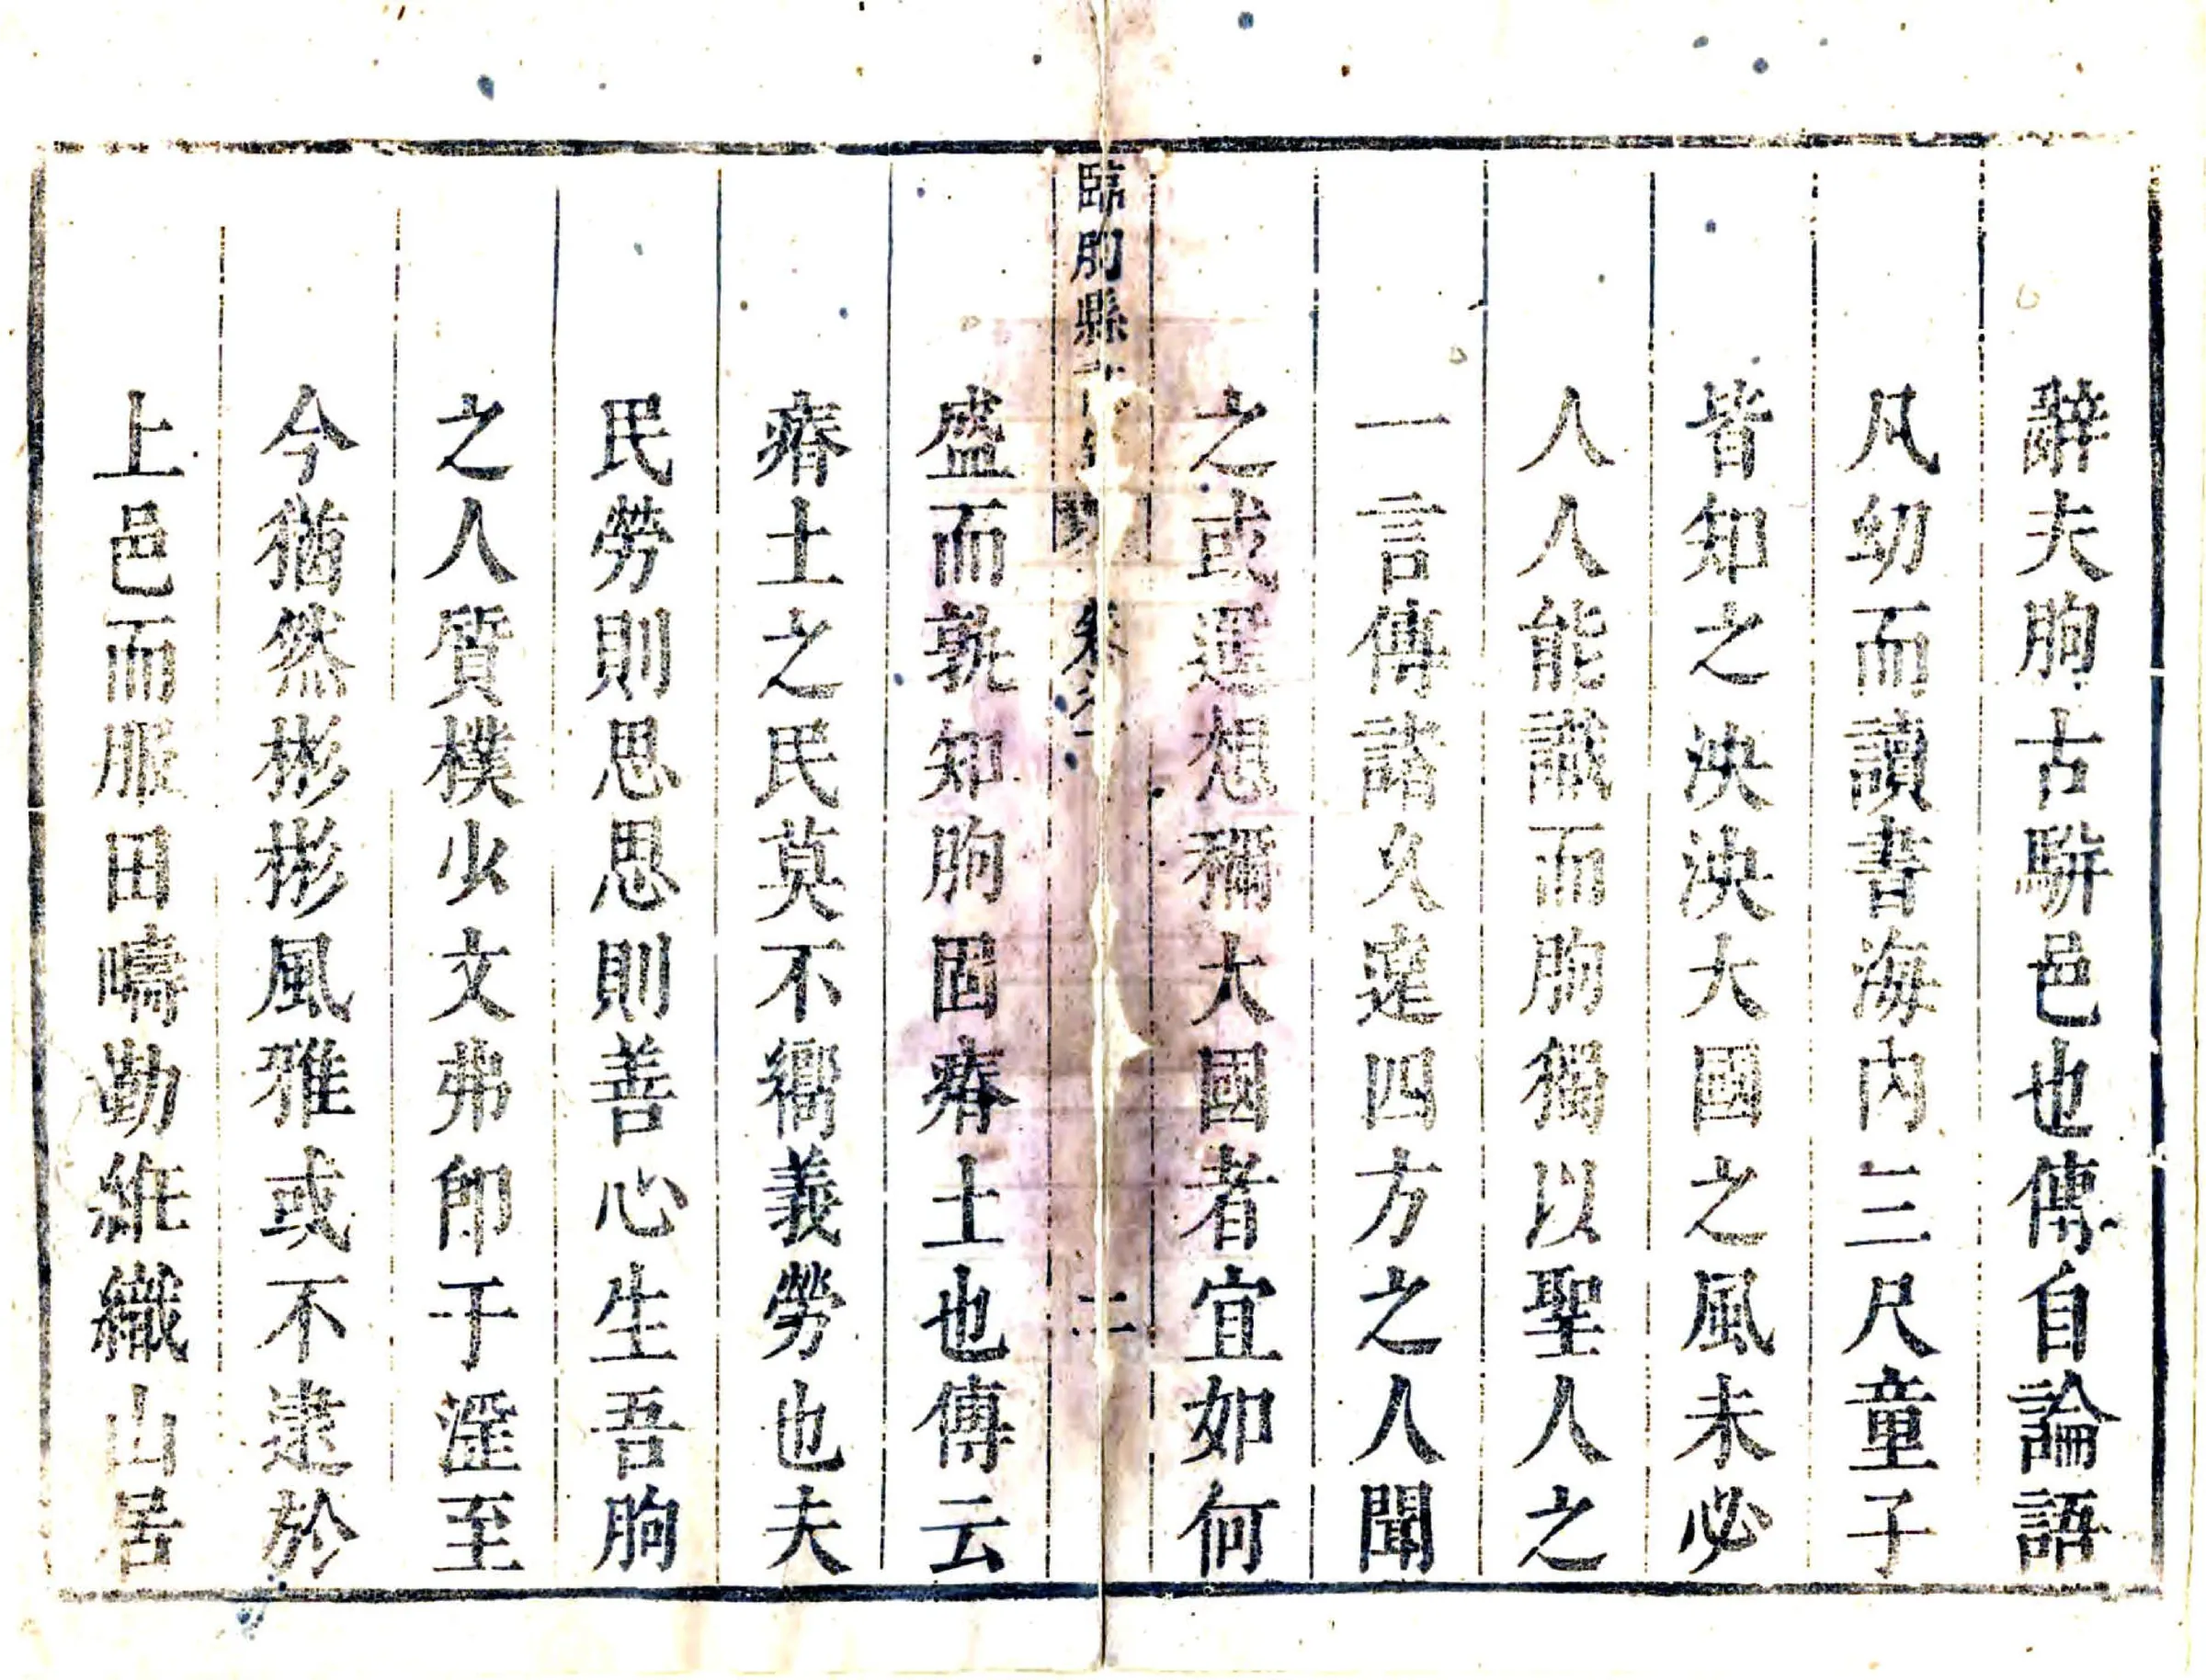 辭夫朐古駢邑也傳自論語
凡幼而讀書海内三尺童子
皆知之泱泱大國之風未必
人人能識而朐獨以聖人之
一言傳諸久遠四方之人聞
之或遐想稱大國者宜如何
臨朐縣
卷六
二
盛而孰知朐固瘠土也傳云
瘠土之民莫不嚮義勞也夫
民勞則思思則善心生吾朐
之人質樸少文弗卽于淫至
今猶然彬彬風雅或不逮於
上邑而服田疇勤維織山居